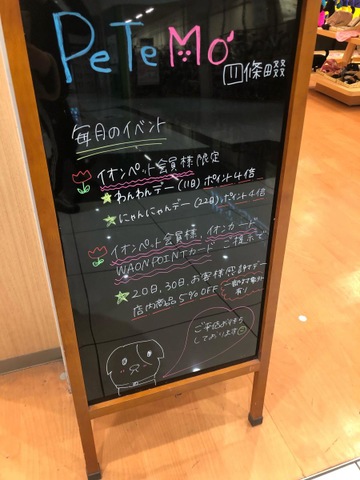 PeTeMo
四條畷
毎月のイベント
イオンペット会員様限定
★わんわんデー(11日)ポイント4倍
★にゃんにゃんデー(22日)ポイント4倍
イオンペット会員様、イオンカード
WAON POINTカード ご提示で
★20日、30日、お客様感謝デー
店内商品5%OFF
ご来店お待ち
しております